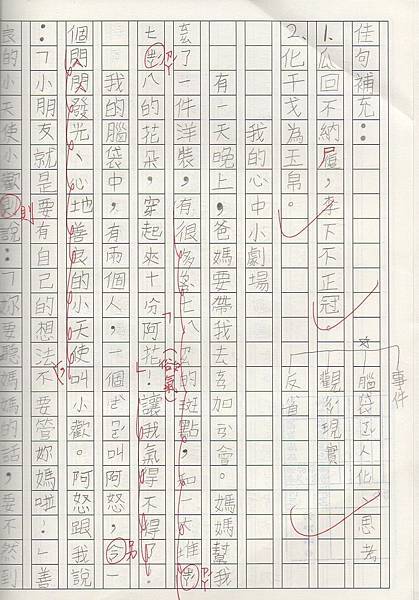 佳句補充：
1.瓜回不納屨，李下不正冠。
2.化干戈為玉帛。
事件
☆腦袋人化
思考
觀現實
反省
我的心中小劇場
有一天晚上，爸媽要帶我去加會。媽媽幫我
了一件洋裝，有很多七八的斑點，和一大堆ㄗㄚˊ
七ㄗㄚˊ八的花朵，穿起來十份阿花！(俗氣)讓我氣得不得了。
我的腦袋中，有兩個人，一個叫阿怒，令另一
個閃閃發光、心地善良的小天使叫小歡。阿怒跟我說
：「小朋友就是要有自己的想法不要管妳媽啦！」善
良的小天使小歡則說：「妳要聽媽媽的話，要不然到